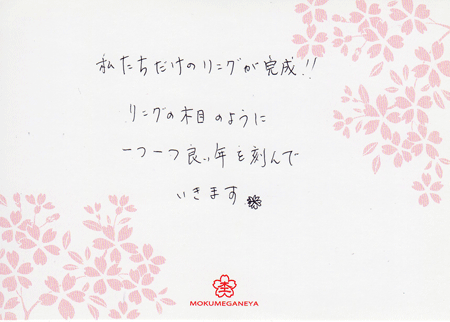 私たちだけのリングが完成!!
リングの木目のように
一つ一つ良い年を刻んで
いきます
杢
MOKUMEGANEYA